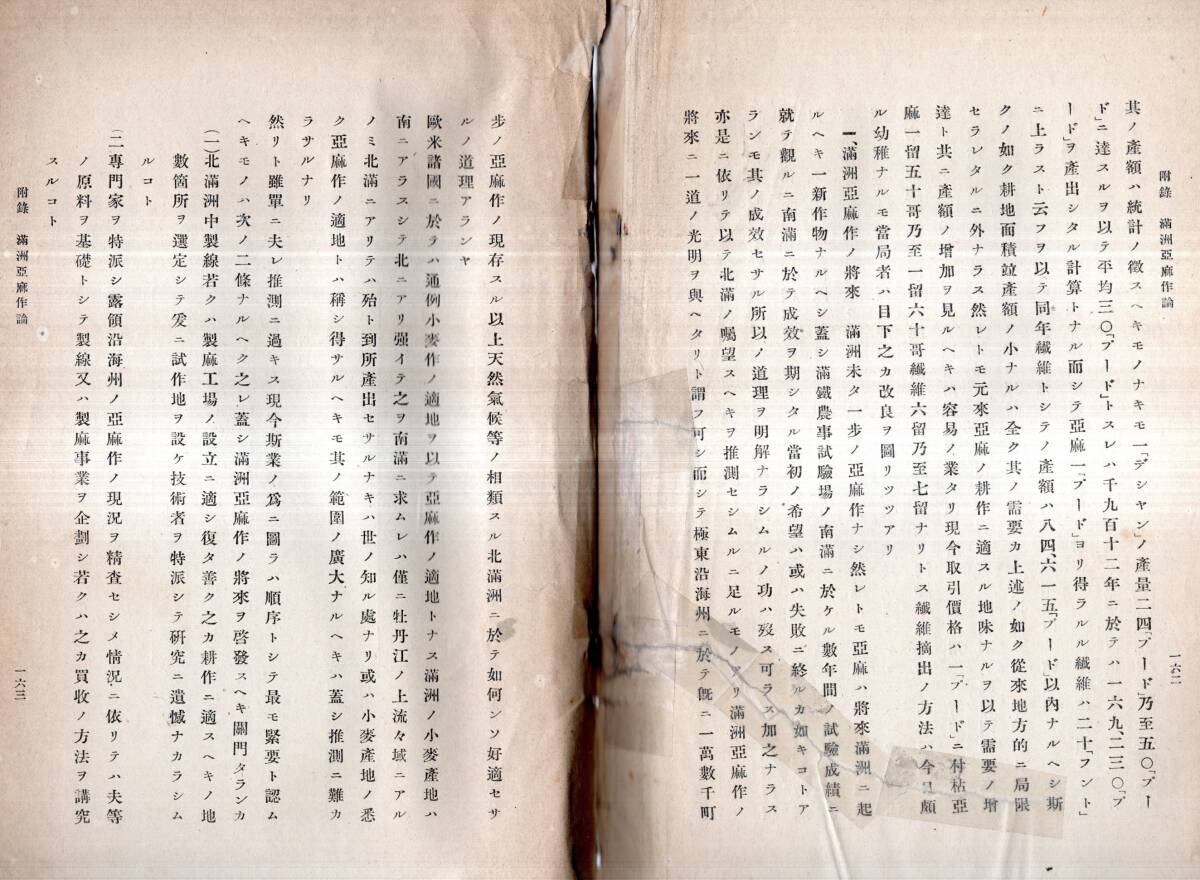 附錄　滿洲亞麻作論
一六二
其ノ產額ハ統計ノ徵スヘキモノナキモ一「デシヤン」ノ產量二四「プード」乃至五〇「プー
ド」ニ達スルヲ以テ平均三〇「プード」トスレハ千九百十二年ニ於テハ一六九、二三〇「プ
ード」ヲ產出シタル計算トナル而シテ亞麻一「プード」ヨリ得ラルル纎維ハ二十「フント」
ニ上ラスト云フヲ以テ同年纎維トシテノ產額ハ八四、六一五「プード」以內ナルヘシ斯
クノ如ク耕地面積竝產額ノ小ナルハ全ク其ノ需要カ上述ノ如ク從來地方的ニ局限
セラレタルニ外ナラス然レトモ元來亞麻ノ耕作ニ適スル地味ナルヲ以テ需要ノ增
達ト共ニ產額ノ增加ヲ見ルヘキハ容易ノ業タリ現今取引價格ハ一「プード」ニ付粘亞
麻一留五十哥乃至一留六十哥纎維六留乃至七留ナリトス纎維摘出ノ方法ハ今日頗
ル幼稚ナルモ當局者ハ目下之カ改良ヲ圖リツツアリ
一、滿洲亞麻作ノ將來　滿洲未タ一步ノ亞麻作ナシ然レトモ亞麻ハ將來滿洲ニ起
ルヘキ一新作物ナルヘシ蓋シ滿鐵農事試驗場ノ南滿ニ於ケル數年間ノ試驗成績ニ
就テ觀ルニ南滿ニ於テ成效ヲ期シタル當初ノ希望ハ或ハ失敗ニ終ルカ如キコトア
ランモ其ノ成效セサル所以ノ道理ヲ明解ナラシムルノ功ハ歿ス可ラス加之ナラス
亦是ニ依リテ以テ北滿ノ囑望スヘキヲ推測セシムルニ足ルモノアリ滿洲亞麻作ノ
將來ニ一道ノ光明ヲ與ヘタリト謂フ可シ而シテ極東沿海州ニ於テ旣ニ一萬數千町
步ノ亞麻作ノ現存スル以上天然氣候等ノ相類スル北滿洲ニ於テ如何ンソ好適セサ
ルノ道理アランヤ
歐米諸國ニ於テハ通例小麥作ノ適地ヲ以テ亞麻作ノ適地トナス滿洲ノ小麥產地ハ
南ニアラスシテ北ニアリ强イテ之ヲ南滿ニ求ムレハ僅ニ牡丹江ノ上流々域ニアル
ノミ北滿ニアリテハ殆ト到所產出セサルナキハ世ノ知ル處ナリ或ハ小麥產地ノ悉
ク亞麻作ノ適地トハ稱シ得サルヘキモ其ノ範圍ノ廣大ナルヘキハ蓋シ推測ニ難カ
ラサルナリ
然リト雖單ニ夫レ推測ニ過キス現今斯業ノ爲ニ圖ラハ順序トシテ最モ緊要ト認ム
ヘキモノハ次ノ二條ナルヘク之レ蓋シ滿洲亞麻作ノ將來ヲ啓發スヘキ關門タランカ
(一)北滿洲中製線若クハ製麻工場ノ設立ニ適シ復タ善ク之カ耕作ニ適スヘキノ地
數箇所ヲ選定シテ爰ニ試作地ヲ設ケ技術者ヲ特派シテ硏究ニ遺憾ナカラシム
ルコト
(二)專門家ヲ特派シ露領沿海州ノ亞麻作ノ現況ヲ精査セシメ情況ニ依リテハ夫等
ノ原料ヲ基礎トシテ製線又ハ製麻事業ヲ企劃シ若クハ之カ買收ノ方法ヲ講究
スルコト
附錄　滿洲亞麻作論
一六三